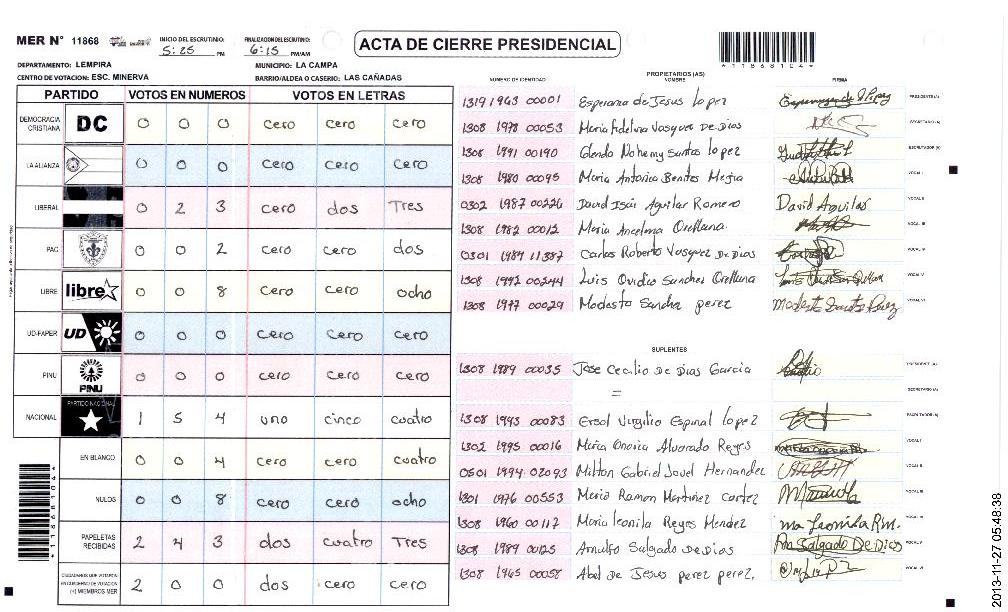 MER N° 11868 INICIO DEL ESCRUTINIO: 5:25 PM FINALIZACION DEL ESCRUTINIO: 6:15 PM/AM ACTA DE CIERRE PRESIDENCIAL
*11868104*
DEPARTAMENTO: LEMPIRA MUNICIPIO: LA CAMPA
CENTRO DE VOTACION: ESC. MINERVA BARRIO/ALDEA O CASERIO: LAS CAÑADAS
PARTIDO VOTOS EN NUMEROS VOTOS EN LETRAS
DEMOCRACIA CRISTIANA DC 0 0 0 cero cero cero
LA ALIANZA 0 0 0 cero cero cero
LIBERAL 0 2 3 cero dos Tres
PAC 0 0 2 cero cero dos
LIBRE libre 0 0 8 cero cero ocho
UD-FAPER UD 0 0 0 cero cero cero
PINU PINU 0 0 0 cero cero cero
NACIONAL PARTIDO NACIONAL 1 5 4 uno cinco cuatro
EN BLANCO 0 0 4 cero cero cuatro
NULOS 0 0 8 cero cero ocho
PAPELETAS RECIBIDAS 2 4 3 dos cuatro Tres
CIUDADANOS QUE VOTARON EN CUADERNO DE VOTACION (+) MIEMBROS MER 2 0 0 dos cero cero
*11868104*
PROPIETARIOS (AS)
NUMERO DE IDENTIDAD NOMBRE FIRMA
1319 1963 00001 Esperanza de Jesus Lopez PRESIDENTE (A)
1308 1978 00053 Maria Fidelina Vasquez De Dias SECRETARIO (A)
1308 1991 00190 Glenda Nohemy Santos Lopez ESCRUTADOR (A)
1308 1980 00095 Maria Antonia Benites Mejia VOCAL I
0302 1987 00226 David Isai Aguilar Romero David Aguilar VOCAL II
1308 1982 00012 Maria Ancelma Orellana VOCAL III
0301 1984 11387 Carlos Roberto Vasquez De Dias VOCAL IV
1308 1992 00244 Luis Ovidio Sanchez Orellana VOCAL V
1308 1977 00029 Modesto Sancha perez VOCAL VI
SUPLENTES
1308 1989 00035 Jose Cecilio De Dias Garcia PRESIDENTE (A)
= SECRETARIO (A)
1308 1993 00083 Ersol Virgilio Espinal Lopez ESCRUTADOR (A)
1302 1995 00016 Maria Onoria Alvarado Reyes VOCAL I
0501 1994 02093 Milton Gabriel Javel Hernandez VOCAL II
1301 1976 00553 Maria Ramon Martinez Cortez VOCAL III
1308 1960 00117 Maria leonila Reyes Mendez ma Leonila R m. VOCAL IV
1308 1989 00125 Arnulfo Salgado De Dias Salgado De Dios VOCAL V
1308 1965 00058 Abel de Jesus perez perez. VOCAL VI
2013-11-27 05:48:38